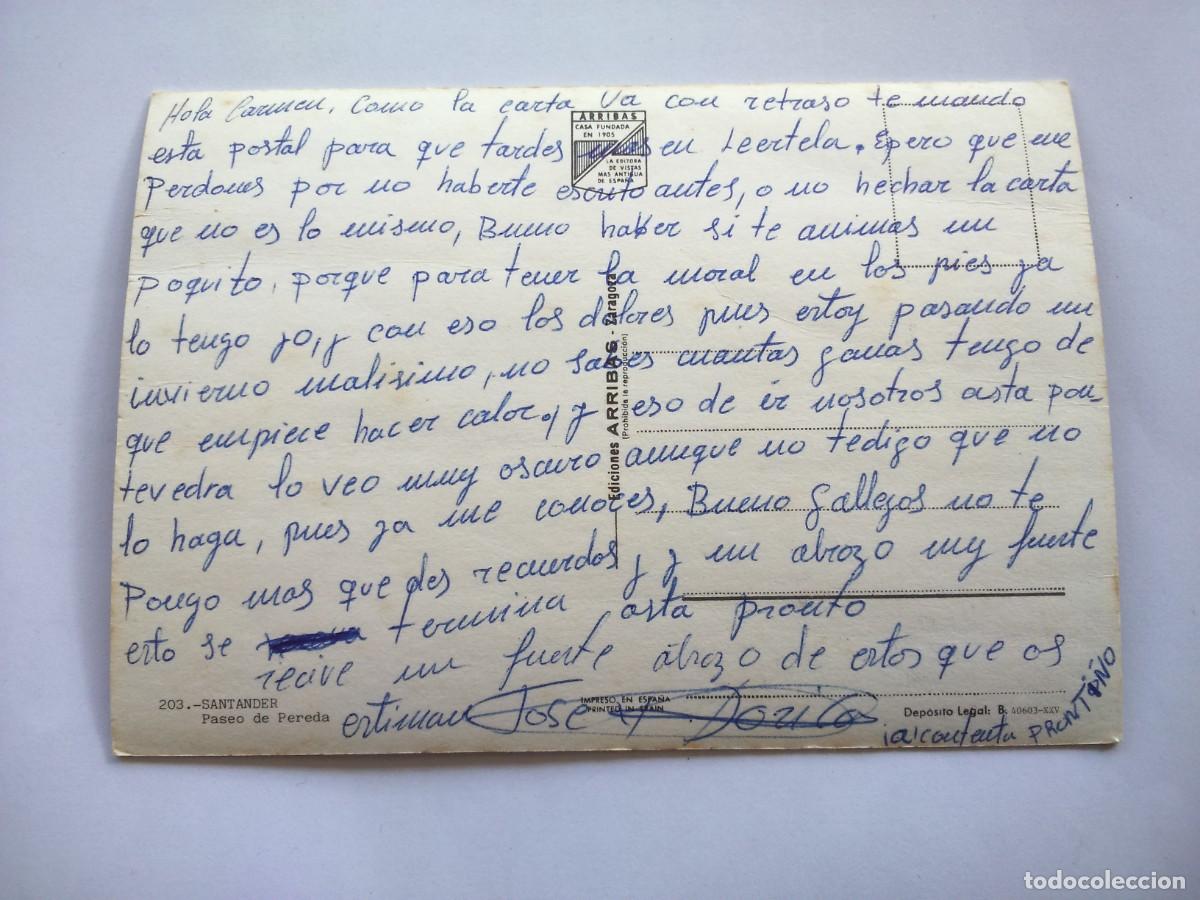 Hola Carmen, como la carta va con retraso te mando
esta postal para que tardes mas en leertela. Epero que me
perdones por no haberte escrito antes, o no hechar la carta
que no es lo mismo, Bueno haber si te animas un
poquito, porque para tener la moral en los pies ya
lo tengo yo, y con eso los dolores pues estoy pasando un
invierno malisimo, no sabes cuantas ganas tengo de
que empiece hacer calor, y eso de ir nosotros asta pon
tevedra lo veo muy oscuro aunque no tedigo que no
lo haga, pues ya me conoces, Bueno gallegos no te
Pongo mas que des recuerdos y y un abrozo muy fuerte
esto se termina asta pronto
recive un fuerte abrozo de estos que os
estiman José y
¡a! contenta PRONTIÑO
ARRIBAS
CASA FUNDADA
EN 1905
LA EDITORA
DE VISTAS
MAS ANTIGUA
DE ESPAÑA
Ediciones ARRIBAS - Zaragoza
(Prohibida la reproducción)
203.-SANTANDER
Paseo de Pereda
IMPRESO EN ESPAÑA
PRINTED IN SPAIN
Depósito Legal: B. 40603-XXV
todocoleccion